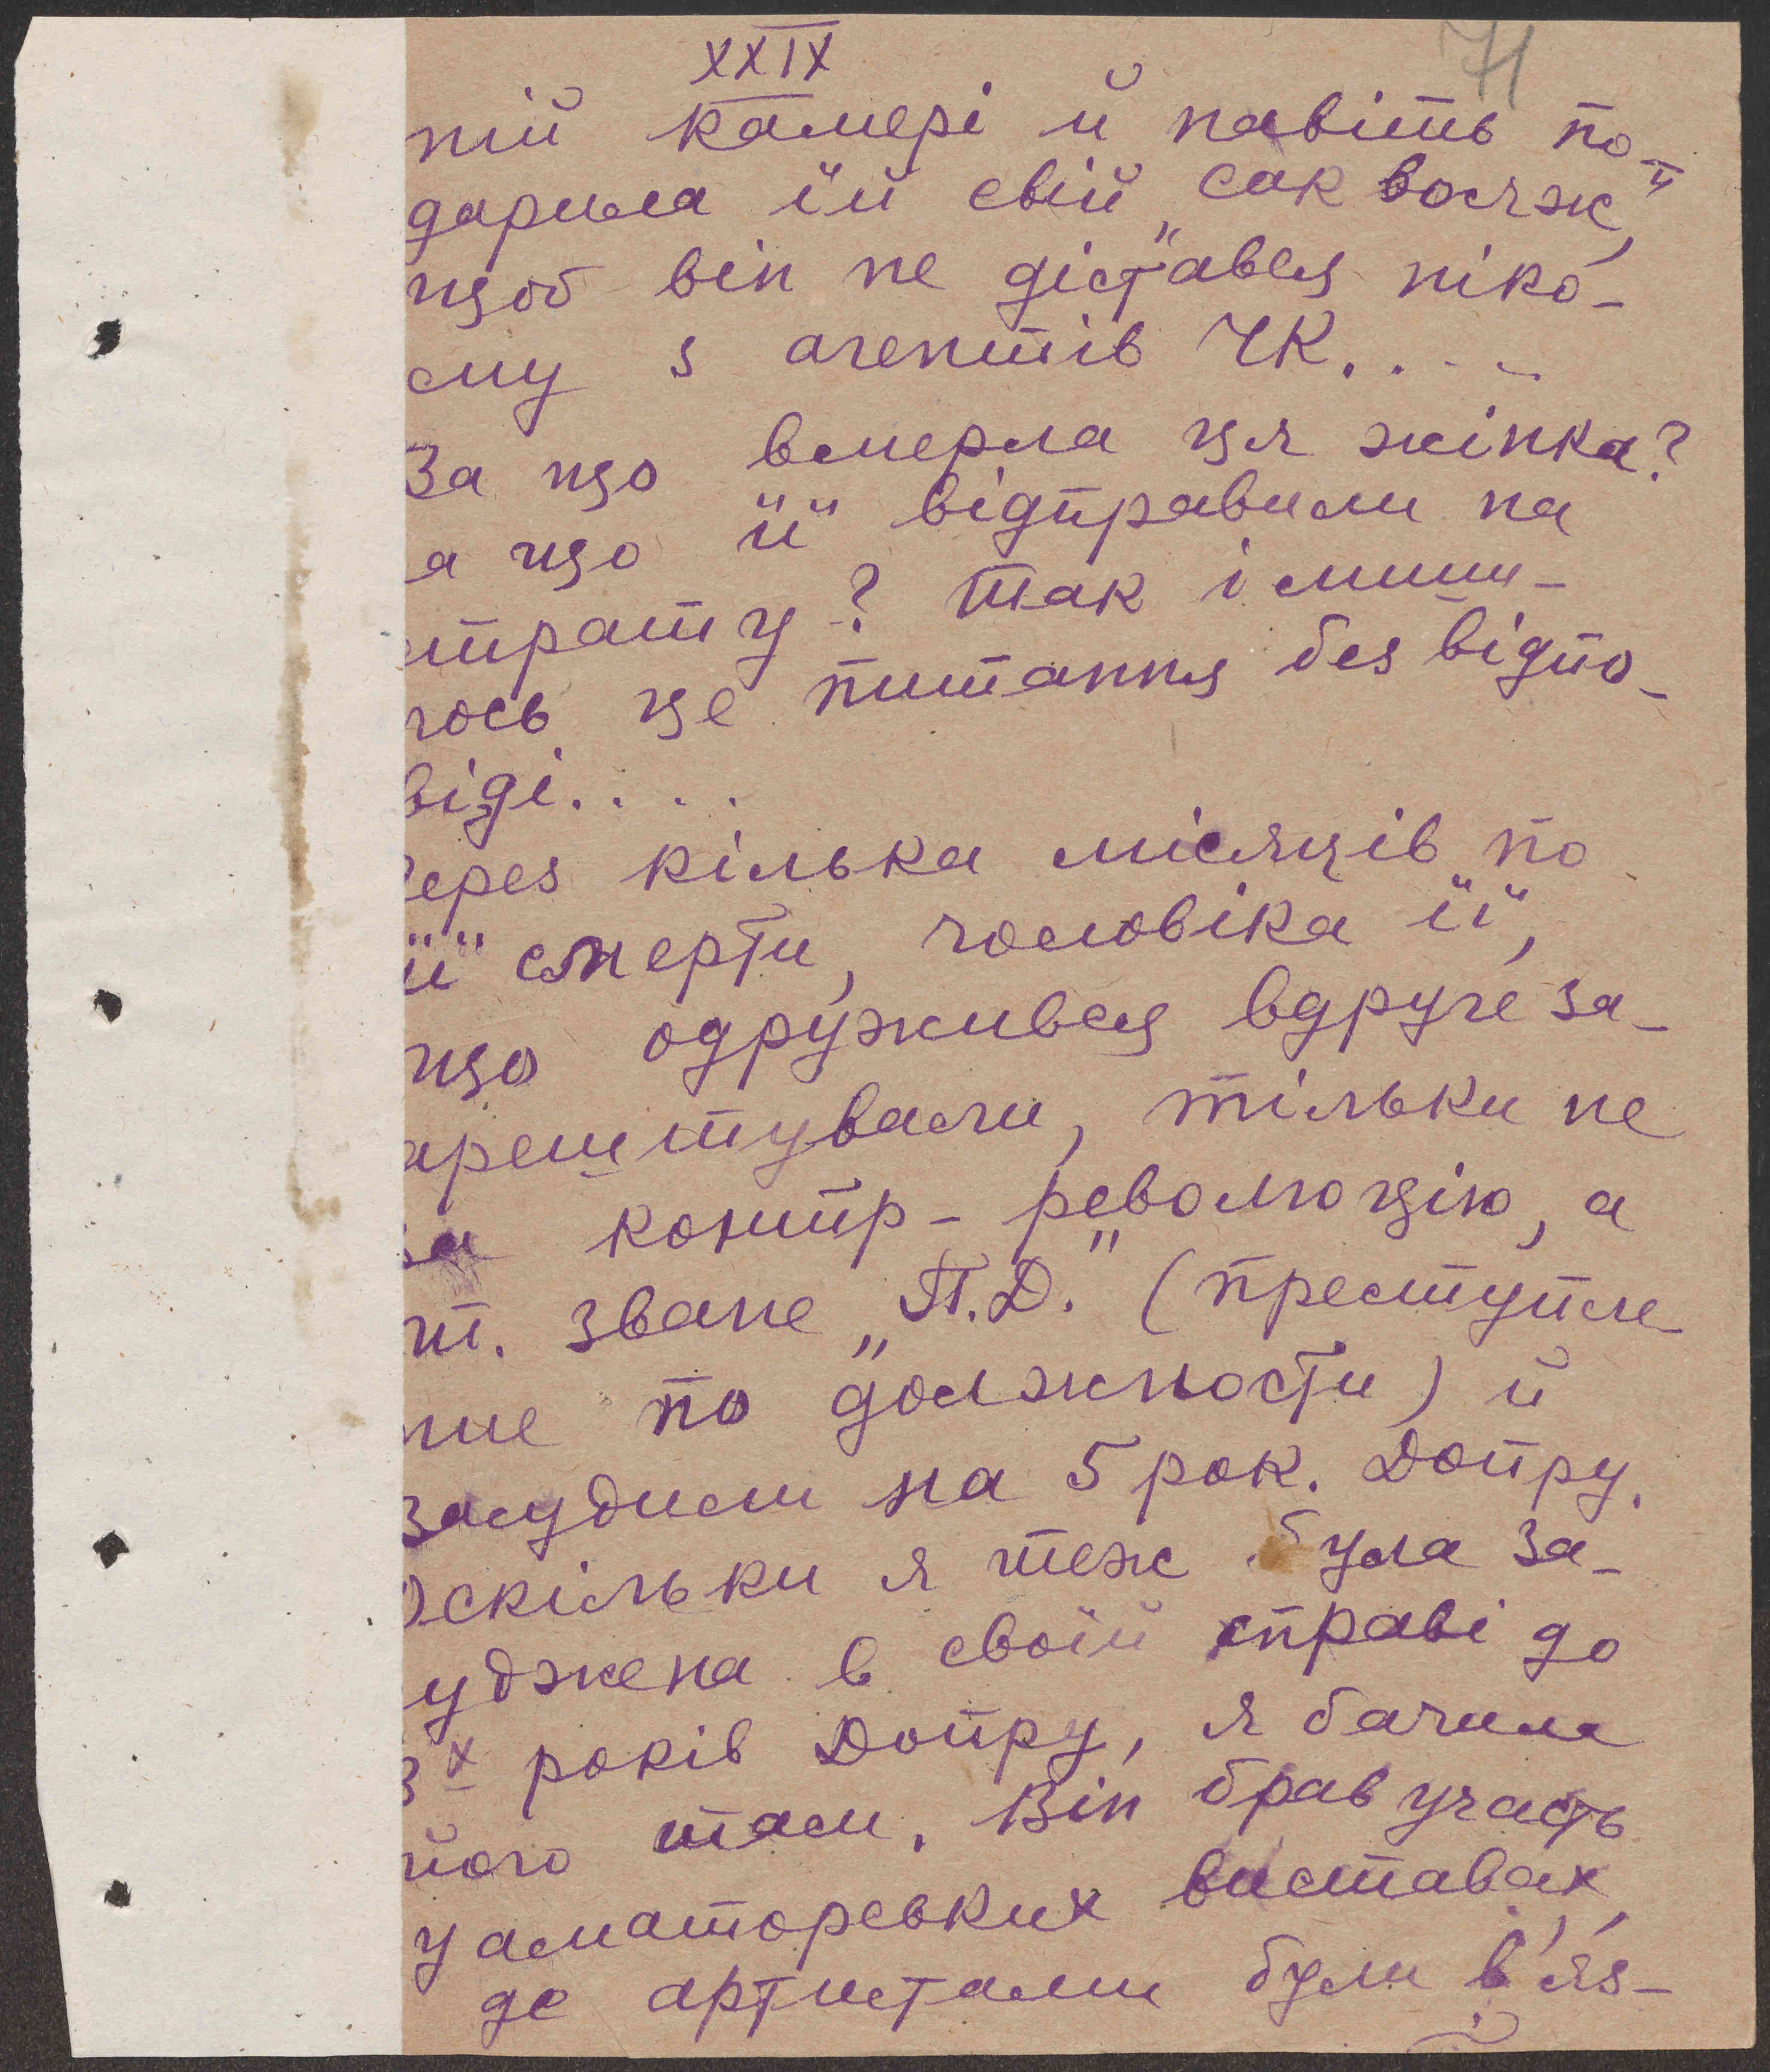 XXIX
71
ній камері й навіть по-
дарила їй свій „сак вояж",
щоб він не діставсь ніко-
му з агентів ЧК....
За що вмерла ця жінка?
а що її відправили на
страту? Так і лиши-
лось це питання без відпо-
віді....
Через кілька місяців по
її смерти, чоловіка її,
що одружився вдруге за-
арештували, тільки не
за контр-революцію, а
т. зване „П.Д." (преступле-
ние по должности) й
засудили на 5 рок. Допру.
Оскільки я теж була за-
уджена в своїй справі до
3х років Допру, я бачила
його там. Він брав участь
у аматорських виставах,
де артистами були в'яз-